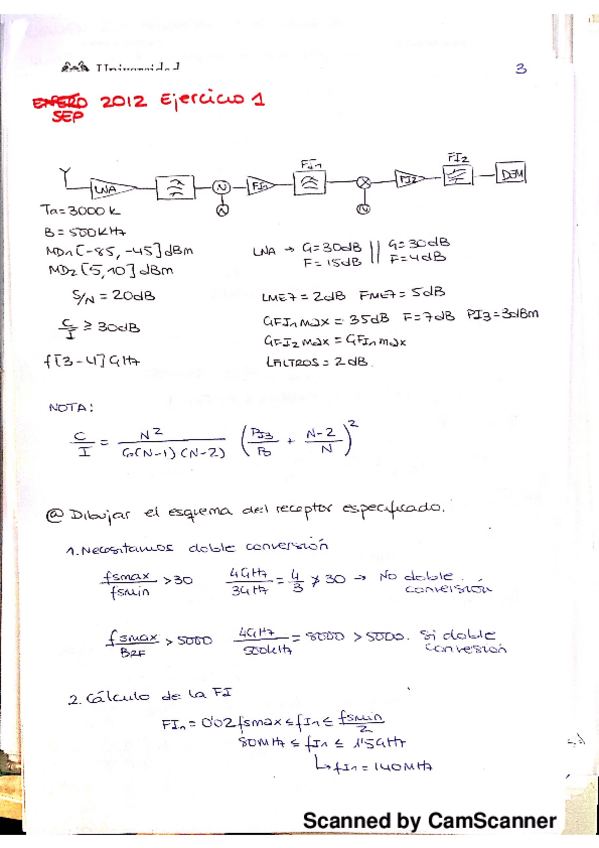 Universidad
3
ENERO 2012 Ejercicio 1
SEP
LNA FI1 FI1 FI2 FI2 DEM
Ta=3000 K
B=500KHz
MD1[-85, -45]dBm
MD2[5,10]dBm
S/N=20dB
C/I ≥ 30dB
f[3-4]GHz
LNA → G=30dB || G=30dB
F=15dB || F=4dB
LMEZ=2dB FMEZ=5dB
GFI1 max = 35dB F=7dB PI3=3dBm
GFI2 max = GFI1 max
LFILTROS = 2dB.
NOTA:
C/I = N²/(G(N-1)(N-2)) (PI3/Po + (N-2)/N)²
ⓐ Dibujar el esquema del receptor especificado.
1. Necesitamos doble conversión
fsmax/fsmin >30 4GHz/3GHz = 4/3 ≯ 30 → No doble conversión
fsmax/BRF > 5000 4GHz/500KHz = 8000 > 5000. Si doble conversión
2. Cálculo de la FI
FI1 = 0'02 fsmax ≤ fI1 ≤ fsmin/2
80MHz ≤ fI1 ≤ 1'5GHz
↳ fI1 = 140MHz
Scanned by CamScanner